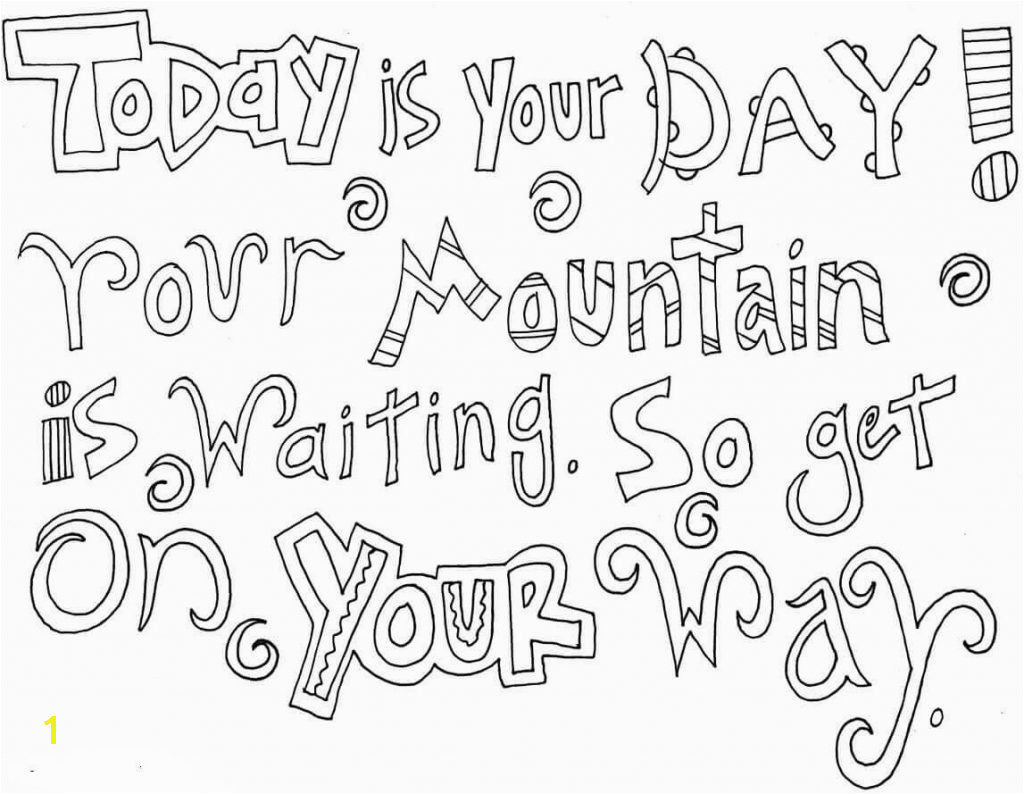 Today is your DAY!
your Mountain
is waiting. So get
On YOUR way.
1